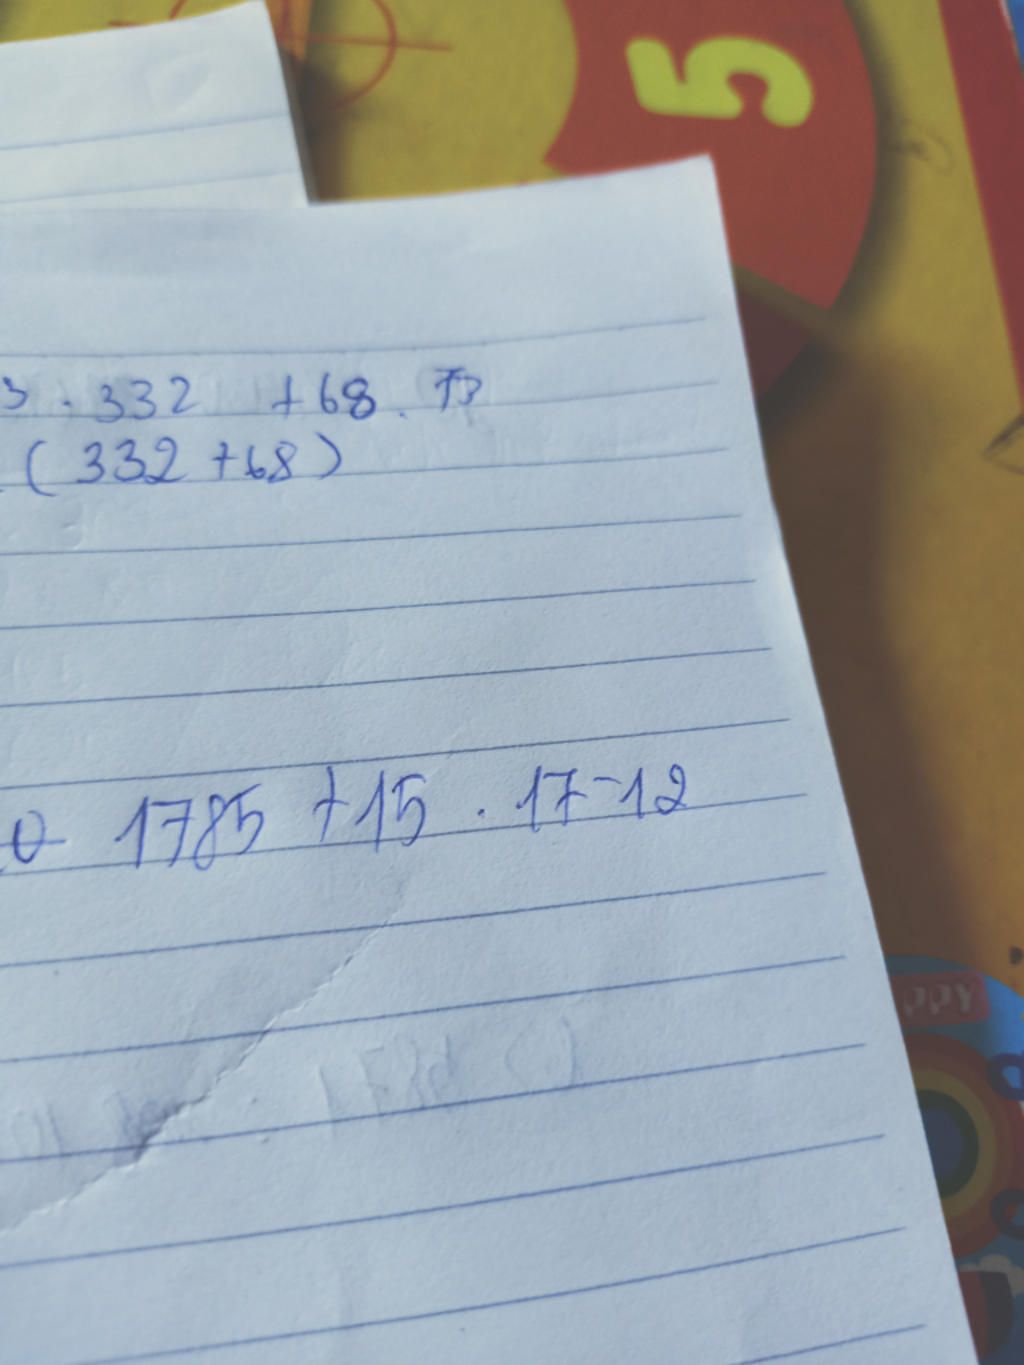 5
3 . 332 + 68 . 73
. ( 332 + 68 )
0 1785 + 15 . 17 - 12
PPY